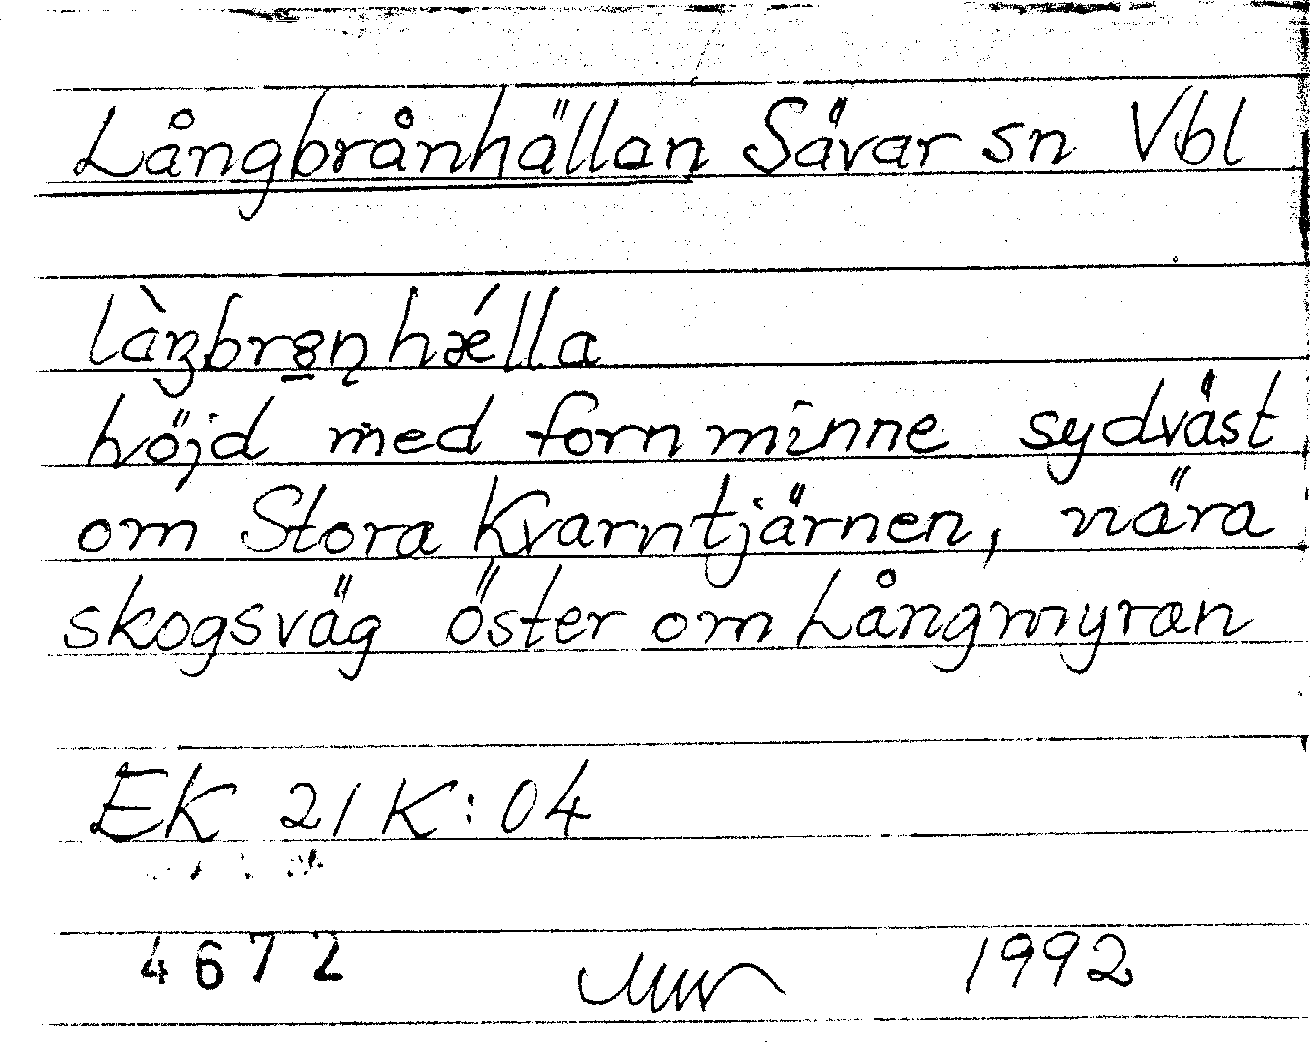 Långbrånhällan Sävar sn Vbl
höjd med fornminne sydväst
om Stora Kvarntjärnen, nära
skogsväg öster om Långmyran
EK 21 K:04
4672 1992